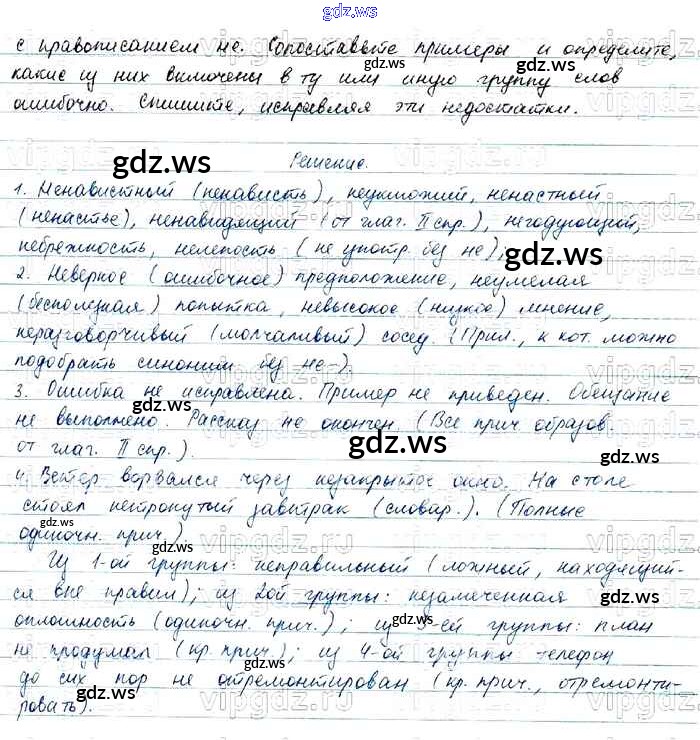 gdz.ws
с правописанием не. Сопоставьте примеры и определите,
какие из них включены в ту или иную группу слов
ошибочно. Спишите, исправляя эти недостатки.
gdz.ws
Решение.
1. Ненавистный (ненависть), неуклюжий, ненастный
(ненастье), ненавидящий (от глаг. II спр.), негодующий,
небрежность, нелепость (не употр. без не);
gdz.ws
2. Неверное (ошибочное) предположение, неумелая
(бесполезная) попытка, невысокое (низкое) мнение,
gdz.ws
неразговорчивый (молчаливый) сосед. (Прил., к кот. можно
подобрать синоним без не).
3. Ошибка не исправлена. Пример не приведен. Обещание
gdz.ws
не выполнено. Рассказ не окончен. (Все прич. образов.
от глаг. II спр.).
gdz.ws
4. Ветер ворвался через незакрытое окно. На столе
стоял нетронутый завтрак (словар.). (Полные
gdz.ws
одиночн. прич.)
Из 1-ой группы: неправильный (ложный, находящий-
ся вне правил); из 2ой группы: незамеченная
оплошность (одиночн. прич.); из 3-ей группы: план
gdz.ws
не продуман (кр. прич.); из 4-ой группы телефон
до сих пор не отремонтирован (кр. прич., отремонти-
ровать).
gdz.ws
vipgdz.ru